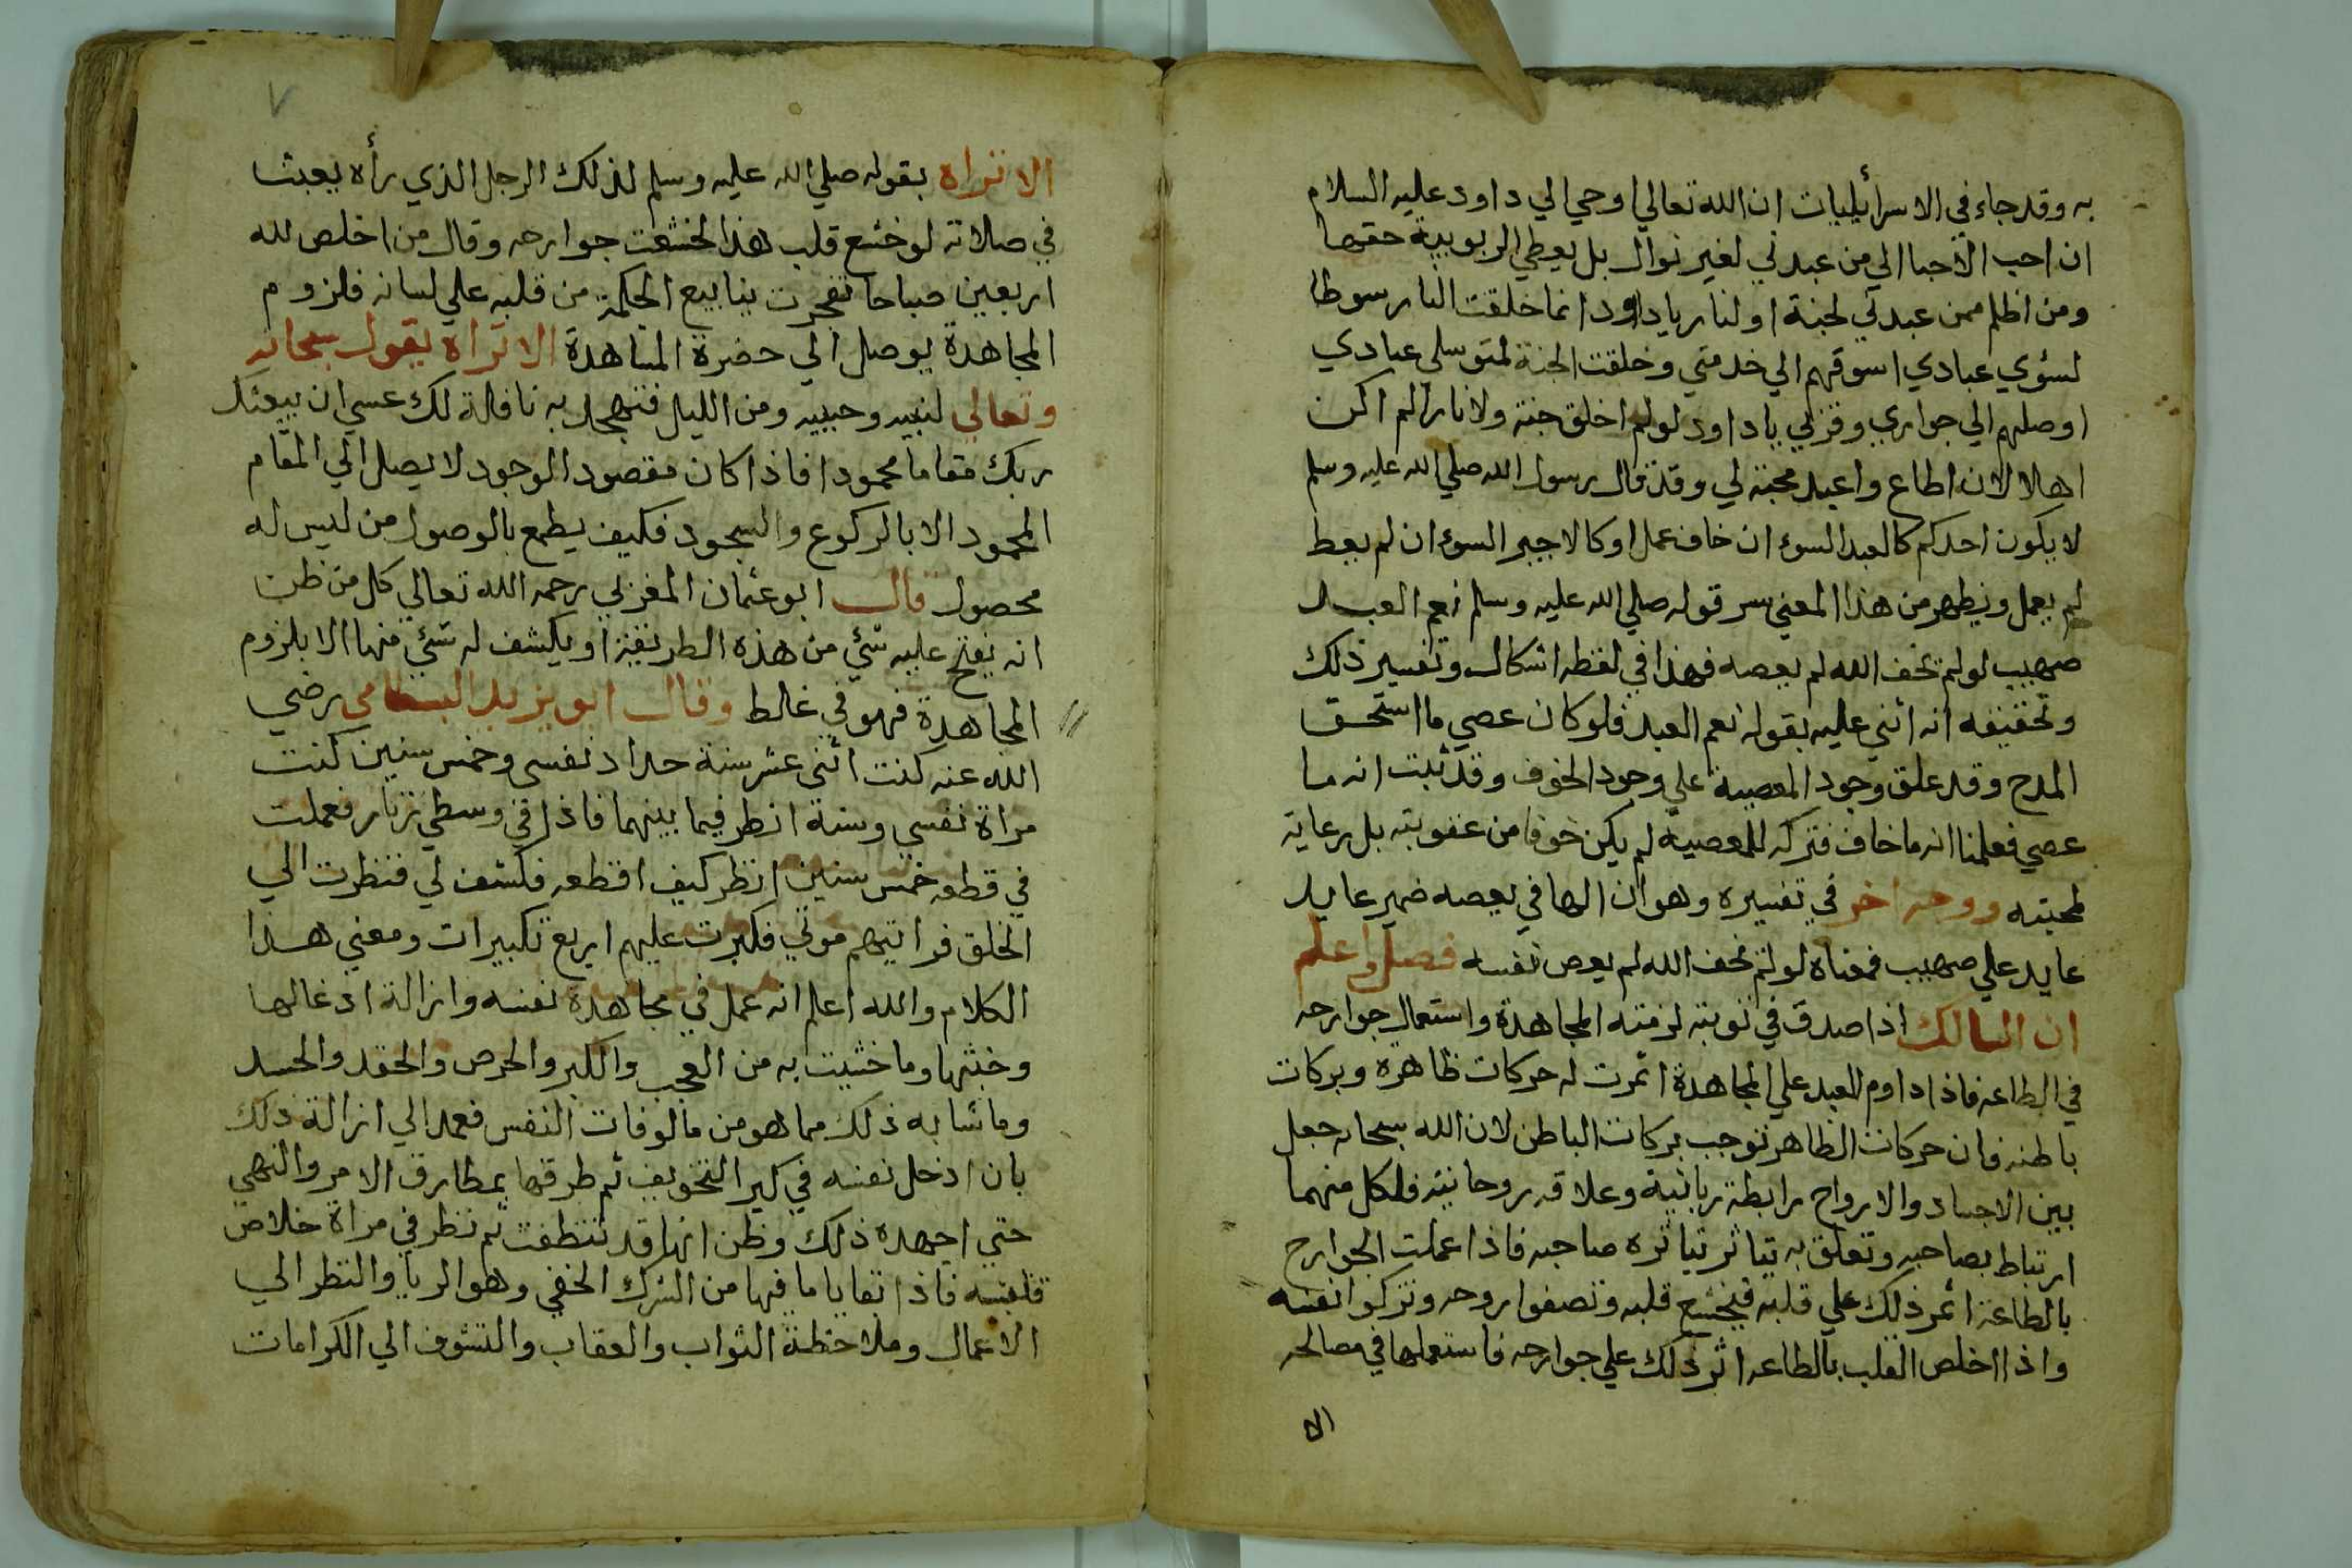 به وقد جاء في الاسرأيليات ان الله تعالي اوحي الي داود عليه السلام
ان احب الاحبا الي من عبدني لغير نوال بل يعطي الربوبية حقها
ومن اظلم ممن عبدني لجنة او لنار ياداود انما خلقت النار سوطا
لسؤي عبادي اسوقهم الي خدمتي وخلقت الجنة لمتوسلي عبادي
اوصلهم الي جواري وقربي ياداود لو لم اخلق جنة ولا نارا لم اكن
اهلا لان اطاع واعبد محبة لي وقد قال رسول الله صلي الله عليه وسلم
لا يكون احدكم كالعبد السوء ان خاف عمل او كالاجير السوء ان لم يعط
لم يعمل ويظهر من هذا المعني سر قوله صلي الله عليه وسلم نعم العبد
صهيب لو لم يخف الله لم يعصه فهذا في لفظه اشكال وتفسير ذلك
وتحقيقه انه اثني عليه بقوله نعم العبد فلو كان عصي ما استحق
المدح وقد علق وجود المعصية علي وجود الخوف وقد ثبت انه ما
عصي فعلمنا انه ما خاف فتركه للمعصية لم يكن خوفا من عقوبته بل رعاية
لمحبته ووجه اخر في تفسيره وهو ان الها في يعصه ضمير عايد
عايد علي صهيب فمعناه لو لم يخف الله لم يعص نفسه فصل واعلم
ان السالك اذا صدق في توبته لزمته المجاهدة واستعمال جوارحه
في الطاعة فاذا داوم العبد علي المجاهدة اثمرت له حركات ظاهره وبركات
باطنه فان حركات الظاهر توجب بركات الباطن لان الله سبحانه جعل
بين الاجساد والارواح رابطة ربانية وعلاقه روحانية فلكل منهما
ارتباط بصاحبه وتعلق به يتاثر بتاثره صاحبه فاذا عملت الجوارح
بالطاعة اثمر ذلك علي قلبه فيخشع قلبه وتصفوا روحه وتزكوا نفسه
واذا اخلص القلب بالطاعه اثر ذلك علي جوارحه فاستعملها في مصالحه
الا
٧
الا تراه بقوله صلي الله عليه وسلم لذلك الرجل الذي رأه يعبث
في صلاته لو خشع قلب هذا لخشعت جوارحه وقال من اخلص لله
اربعين صباحا تفجرت ينابيع الحكمة من قلبه علي لسانه فلزوم
المجاهدة يوصل الي حضرة المشاهدة الا تراه يقول سبحانه
وتعالي لنبيه وحبيبه ومن الليل فتهجد به نافلة لك عسي ان يبعثك
ربك مقاما محمودا فاذا كان مقصود الوجود لا يصل الي المقام
المحمود الا بالركوع والسجود فكيف يطمع بالوصول من ليس له
محصول قال ابو عثمان المغربي رحمه الله تعالي كل من ظن
انه يفتح عليه شئي من هذه الطريقة او يكشف له شئي منها الا بلزوم
المجاهدة فهو في غلط وقال ابو يزيد البسطامي رضي
الله عنه كنت اثني عشر سنة حداد نفسي وخمس سنين كنت
مراة نفسي وسنة انظر فيما بينهما فاذا في وسطي زنار فعملت
في قطعه خمس سنين انظر كيف اقطعه فكشف لي فنظرت الي
الخلق فراتيهم موتي فكبرت عليهم اربع تكبيرات ومعني هذا
الكلام والله اعلم انه عمل في مجاهدة نفسه وازالة ادغالها
وخبثها وما خشيت به من العجب والكبر والحرص والحقد والحسد
وما شابه ذلك مما هو من مالوفات النفس فعمد الي ازالة ذلك
بان ادخل نفسه في كير التخويف ثم طرقها بمطارق الامر والنهي
حتي اجهده ذلك وظن انها قد تنظفت ثم نظر في مراة خلاص
قلبه فاذا بقايا ما فيها من الشرك الخفي وهو الريا والنظر الي
الاعمال وملاحظة الثواب والعقاب والتشوف الي الكرامات